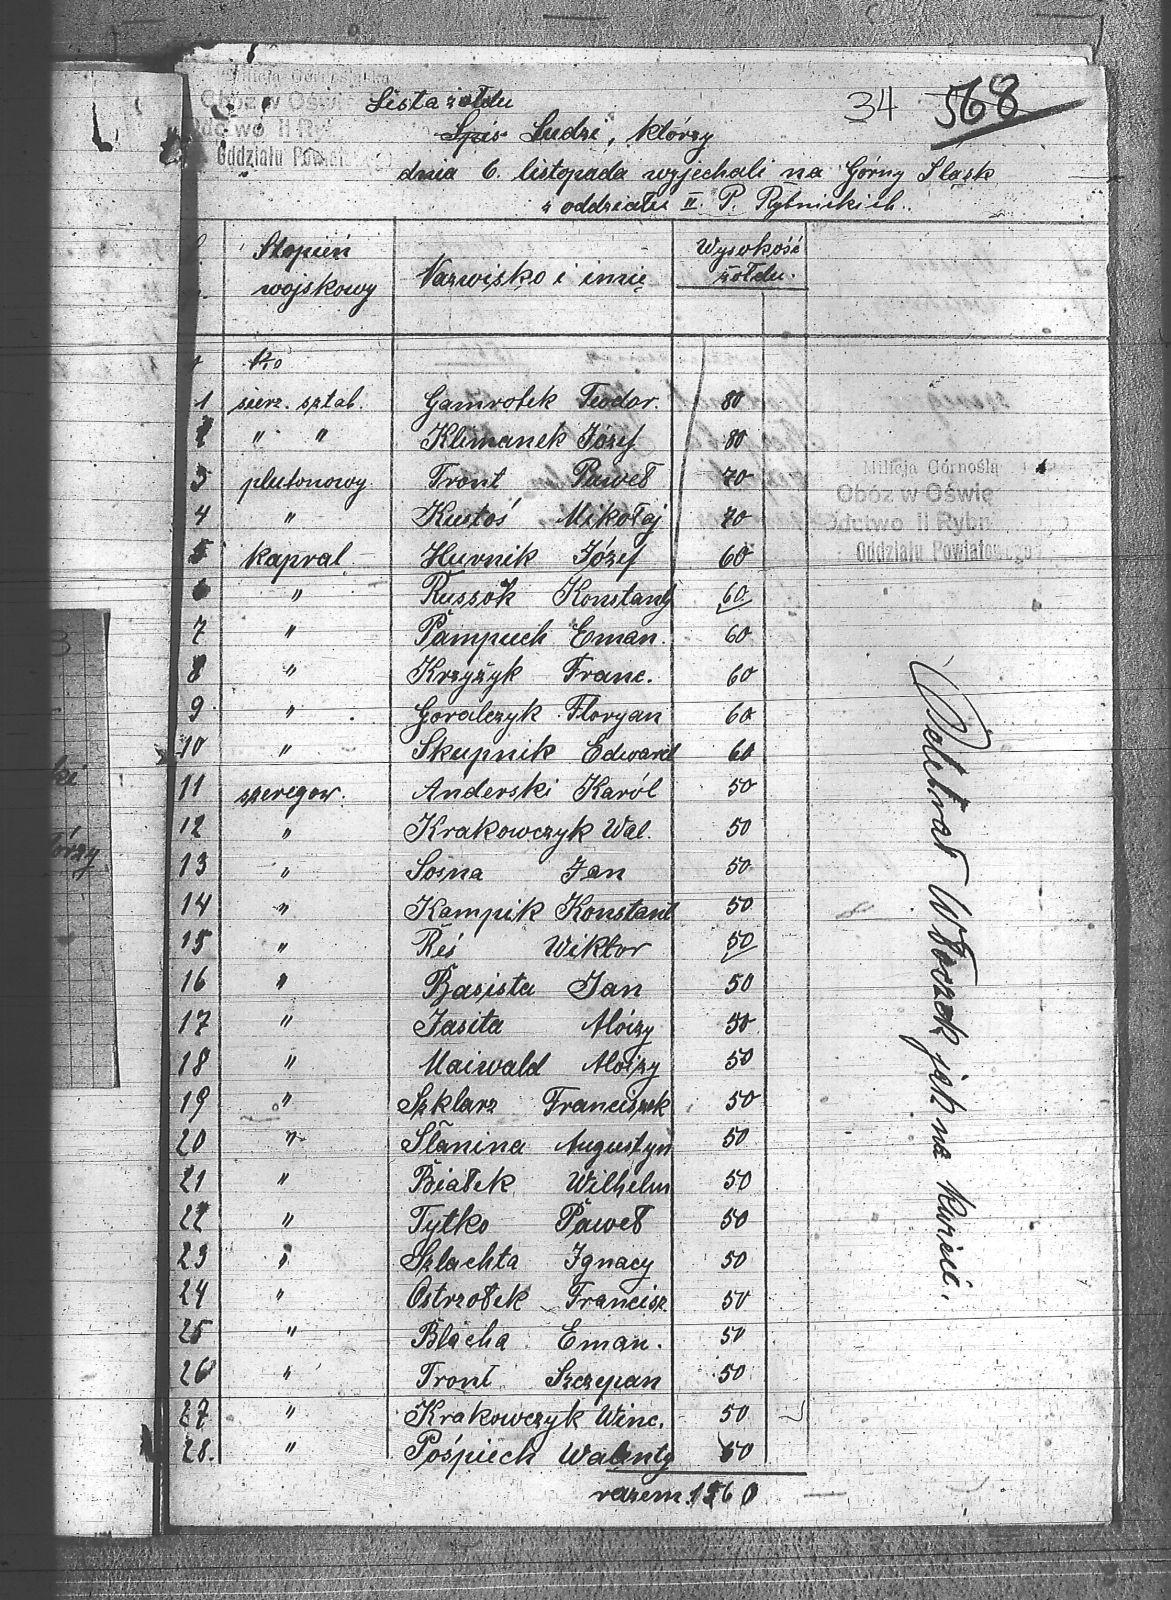 Milicja Górnośląska
Obóz w Oświę
Dctwo II Ryb
Oddziału Powiatow
34 568
Lista żołdu
Spis Ludzi, którzy
dnia 6. listopada wyjechali na Górny Sląsk
z oddziału II. P. Rybnickich.
Stopień wojskowy Nazwisko i imię Wysokość żołdu.
1 sierz. sztab. Gamrotek Teodor. 80
2 " " Klimanek Józef 80
3 plutonowy Front Paweł 70
4 " Kustoś Mikołaj 70
5 kapral Hurnik Józef 60
6 " Russok Konstanty 60
7 " Pampuch Eman. 60
8 " Krzyżyk Franc. 60
9 " Goralczyk Floryan 60
10 " Skupnik Edward 60
11 szeregow. Anderski Karól 50
12 " Krakowczyk Wal. 50
13 " Sosna Jan 50
14 " Kampik Konstant 50
15 " Reś Wiktor 50
16 " Basista Jan 50
17 " Jasita Alóizy 50
18 " Maiwald Aloizy 50
19 " Szklarz Franciszek 50
20 " Słanina Augustyn 50
21 " Białek Wilhelm 50
22 " Tytko Paweł 50
23 " Szlachta Ignacy 50
24 " Ostrzołek Francisz. 50
25 " Blacha Eman. 50
26 " Front Szczepan 50
27 " Krakowczyk Winc. 50
28. " Pośpiech Walenty 50
razem 1560
Milicja Górnoślą
Obóz w Oświę
Ddctwo II Rybn
Oddziału Powiatowego
Odebrał Włoczek jak na kwicie.